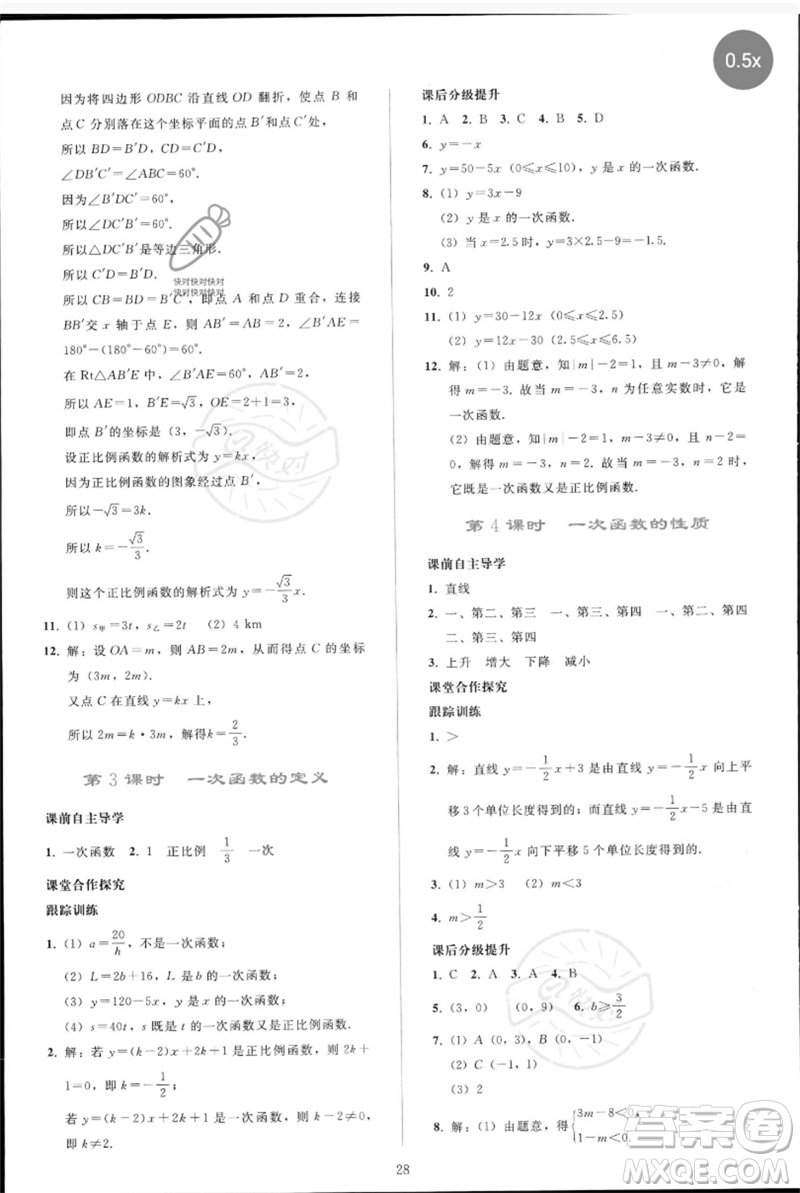 0.5x
因为将四边形 ODBC 沿直线 OD 翻折，使点 B 和
点 C 分别落在这个坐标平面的点 B′和点 C′处，
所以 BD=B′D，CD=C′D，
∠DB′C′=∠ABC=60°.
因为∠B′DC′=60°，
所以∠DC′B′=60°.
所以△DC′B′是等边三角形.
所以 C′D=B′D.
所以 CB=BD=B′C′，即点 A 和点 D 重合，连接
BB′交 x 轴于点 E，则 AB′=AB=2，∠B′AE=
180°-(180°-60°)=60°.
在 Rt△AB′E 中，∠B′AE=60°，AB′=2，
所以 AE=1，B′E=√3，OE=2+1=3，
即点 B′的坐标为 (3，-√3).
设正比例函数的解析式为 y=kx，
因为正比例函数的图象经过点 B′，
所以-√3=3k.
所以 k=-√3/3.
则这个正比例函数的解析式为 y=-√3/3 x.
11. (1) s甲=3t，s乙=2t (2) 4 km
12. 解：设 OA=m，则 AB=2m，从而得点 C 的坐标
为 (3m，2m).
又点 C 在直线 y=kx 上，
所以 2m=k·3m，解得 k=2/3.
第 3 课时 一次函数的定义
课前自主导学
1. 一次函数 2. 1 正比例 1/3 一次
课堂合作探究
跟踪训练
1. (1) a=20/h，不是一次函数；
(2) L=2b+16，L是b的一次函数；
(3) y=120-5x，y是x的一次函数；
(4) s=40t，s 既是t的一次函数又是正比例函数.
2. 解：若 y=(k-2)x+2k+1是正比例函数，则 2k+
1=0，即 k=-1/2；
若 y=(k-2)x+2k+1是一次函数，则k-2≠0，
即 k≠2.
课后分级提升
1. A 2. B 3. C 4. B 5. D
6. y=-x
7. y=50-5x (0≤x≤10)，y 是 x 的一次函数.
8. (1) y=3x-9
(2) y 是 x 的一次函数.
(3) 当 x=2.5 时，y=3×2.5-9=-1.5.
9. A
10. 2
11. (1) y=30-12x (0≤x≤2.5)
(2) y=12x-30 (2.5≤x≤6.5)
12. 解：(1) 由题意，知|m|-2=1，且 m-3≠0，解
得 m=-3. 故当 m=-3，n 为任意实数时，它是
一次函数.
(2) 由题意，知|m|-2=1，且 m-3≠0，n-2=
0，解得 m=-3，n=2. 故当 m=-3，n=2 时，
它既是一次函数又是正比例函数.
第 4 课时 一次函数的性质
课前自主导学
1. 直线
2. 一、第二、第三 一、第三、第四 一、第二、第四
二、第三、第四
3. 上升 增大 下降 减小
课堂合作探究
跟踪训练
1. >
2. 解：直线 y=-1/2 x+3 由直线 y=-1/2 x 向上平
移 3 个单位长度得到的；而直线 y=-1/2 x-5 是由
直线 y=-1/2 x 向下平移 5 个单位长度得到的.
3. (1) m>3 (2) m<3
4. m>1/2
课后分级提升
1. C 2. A 3. A 4. B
5. (3，0) (0，9) 6. b≥3/2
7. (1) A (0，3)，B (0，-1)
(2) C (-1，1)
(3) 2
8. 解：(1) 由题意，得{3m-8<0，
1-m<0.
快对快对快对
快对快对快对
28
答案圈